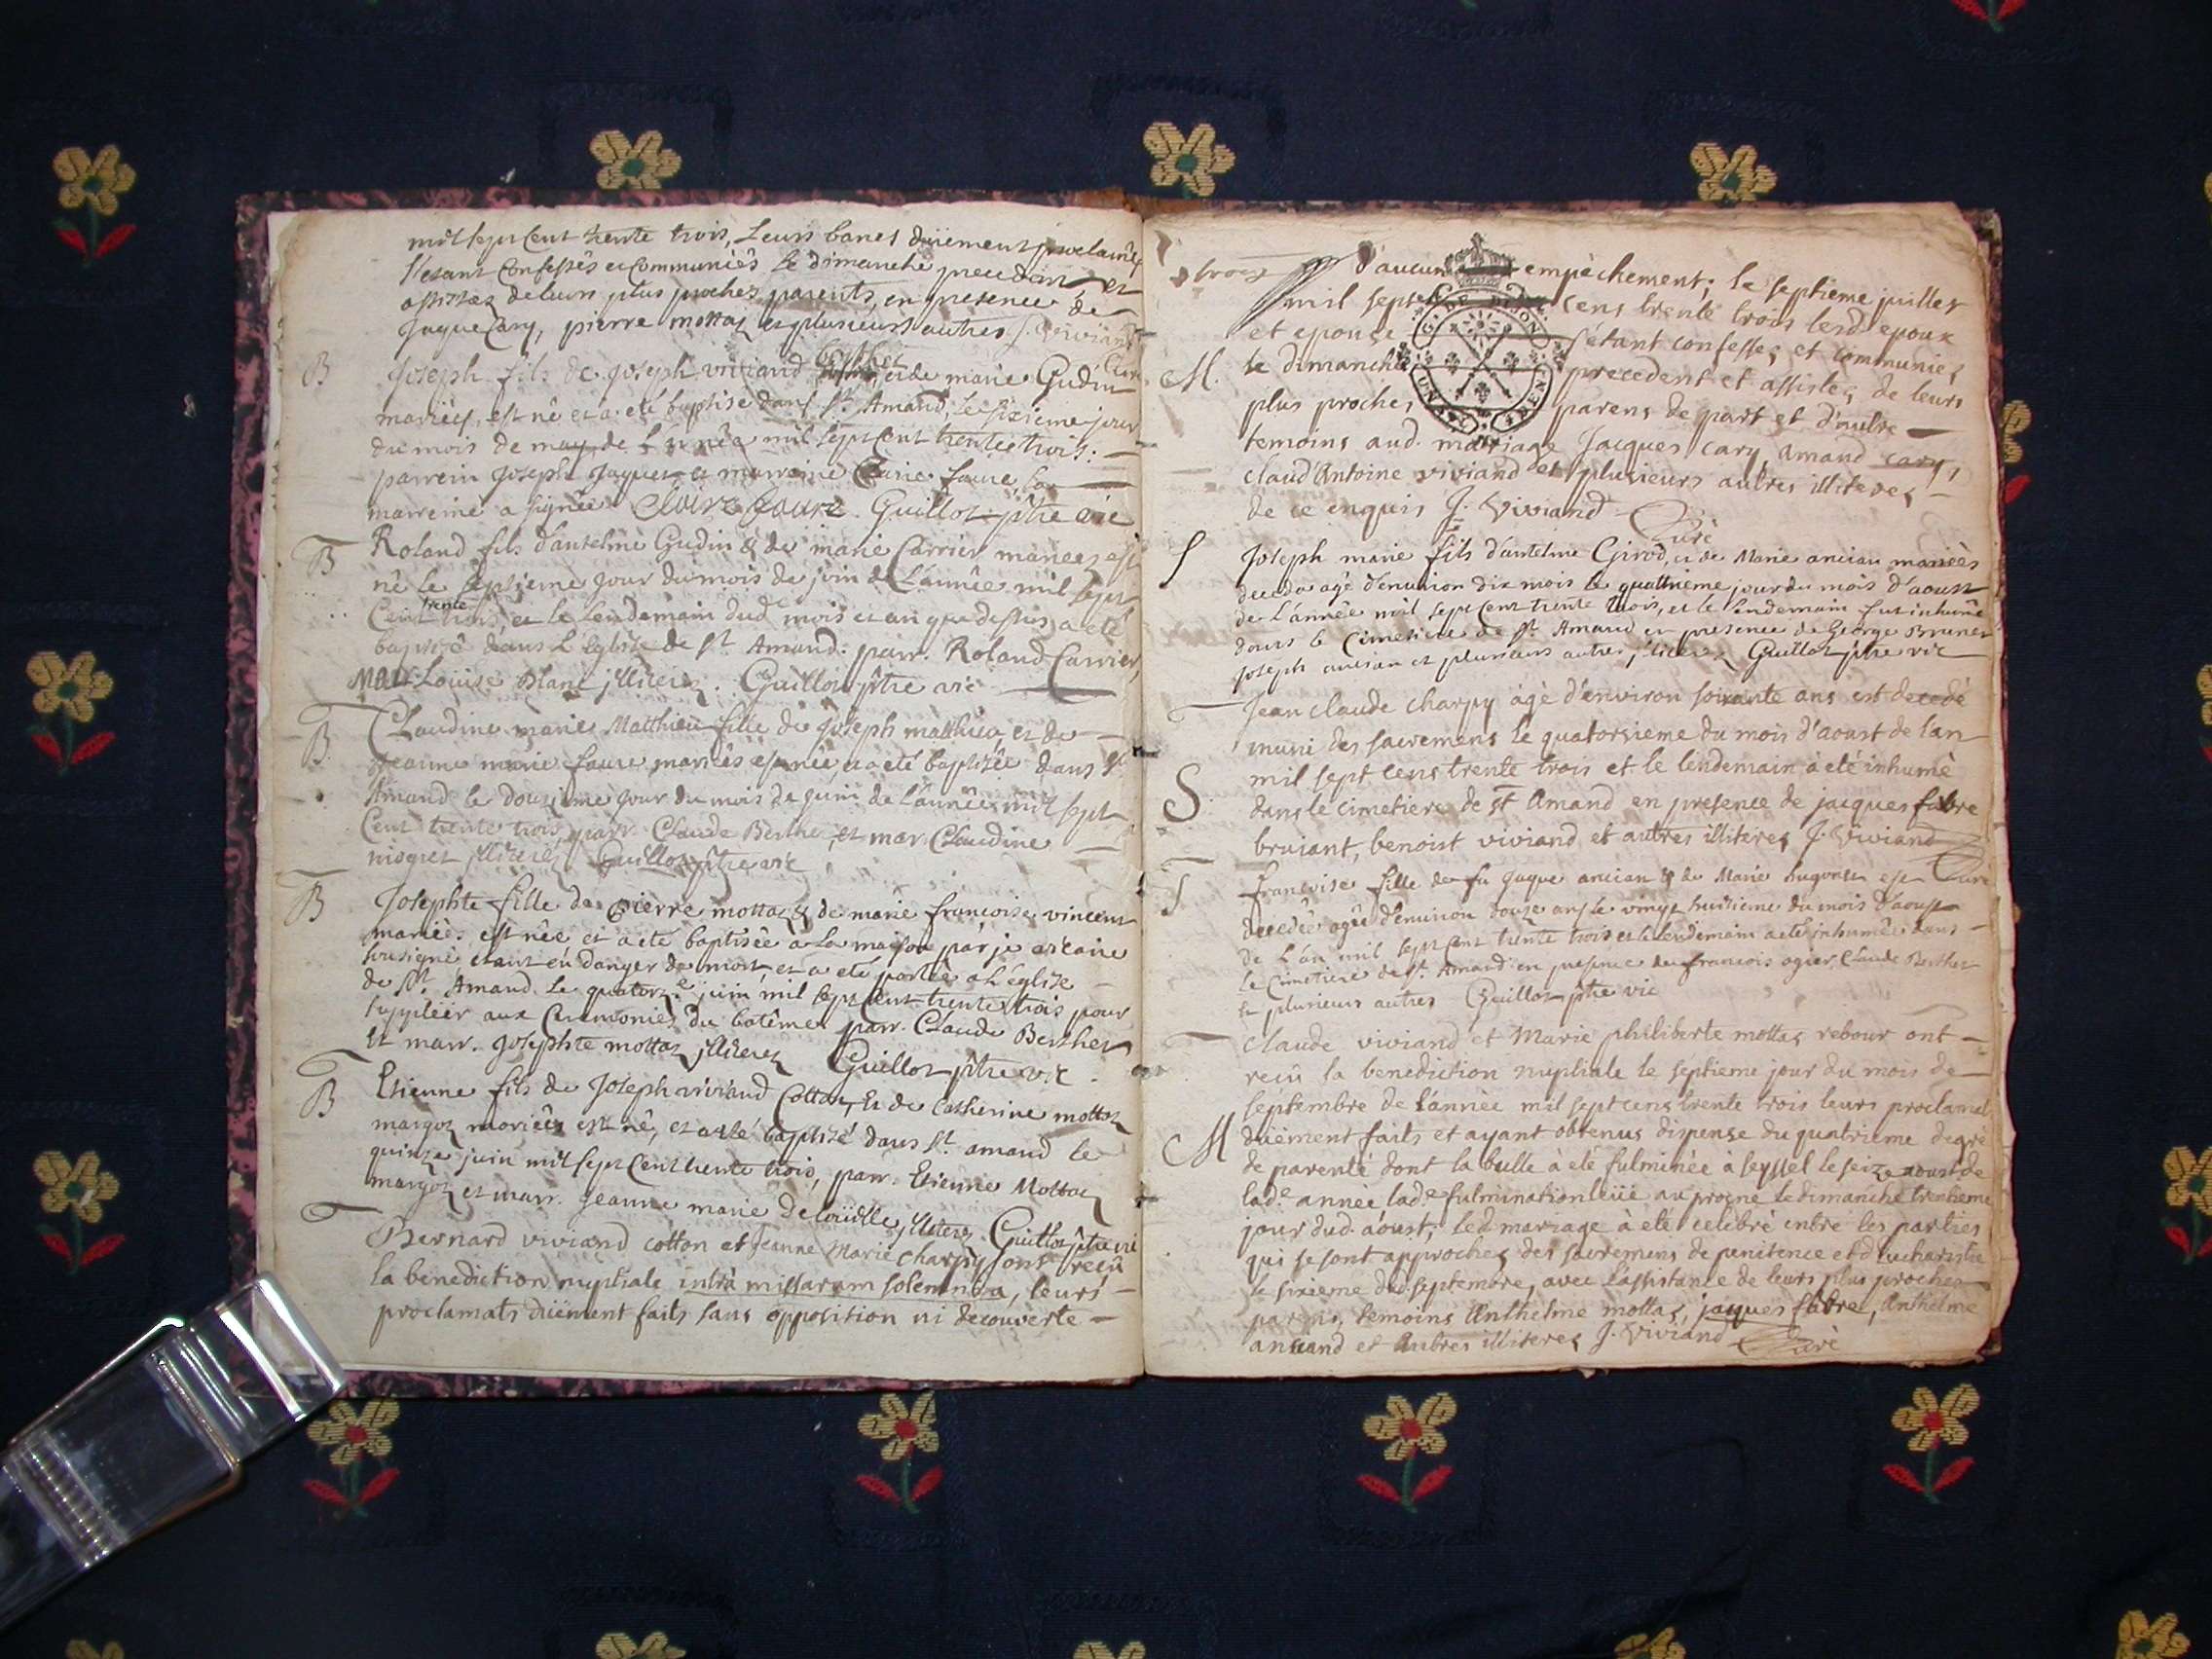 mil sept Cent trente trois, Leurs bancs düement proclamés
S'etant Confessés et Communiés le dimanche precedent et
assistez de leurs plus proches parents, en presence de
Jaque Cary, pierre mottaz et plusieurs autres J. Viviand
Curé
B
berthet
Joseph fils de Joseph viviand et de marie Gudin
mariés, est né et a eté baptisé dans St. Amand, le sixieme jour
du mois de may de L'année mil sept Cent trente trois:
parrein Joseph Jaquet et marreine Claire faure, la
marreine a signée Claire faure Guillot ptre vic
B
Roland fils d'antelme Gudin & de marie Carrier mariez est
né le septieme jour du mois de juin de L'année mil sept
trente
Cent trois et le Lendemain dud mois et an que dessus a eté
baptizé dans L'Eglise de St. Amand. parr. Roland Carrier,
Marr Louise Blanc jlliterez. Guillot ptre vic
B.
Claudine marie Matthieu fille de Joseph matthieu, et de
Jeanne marie faure mariés est née, et a eté baptizée dans St
Amand le douzieme jour du mois de juin de L'année mil sept
Cent trente trois, parr. Claude Berthet, et mar. Claudine
jlliterez Guillot ptre vic
B
Josephte fille de pierre mottaz & de marie francoise vincent
mariés est née et a eté baptisée à la maison par je vicaire
sousigné etant en danger de mort, et a eté portée a L'église
de St. Amand Le quatorz.e juin mil sept Cent trente trois pour
suppléér aux Ceremonies du batême. parr. Claude Berthet
et marr. Josephte mottaz jlliterez Guillot ptre vic.
B
Etienne fils de Joseph viviand Cottaz, Et de Catherine mottaz
margoz mariés est né, et a eté baptizé dans St. amand le
quinze juin mil sept Cent trente trois, parr. Etienne Mottaz
margoz et marr. Jeanne marie jlliterez Guillot ptre vic
Bernard viviand cotton et Jeanne Marie charpy ont reçu
la benediction nuptiale intrà missarum solemnia, leurs
proclamats düement faits sans opposition ni decouverte
d'aucun empêchement; le septieme juillet
mil sept cens trente trois lesd. epoux
et epouse s'étant confessez et communiez
M.
le dimanche precedent et assistez de leurs
plus proches parens de part et d'autre
temoins aud. mariage Jacques cary, amand cary,
claud'Antoine viviand et plusieurs autres illiterez
de ce enquis J. Viviand
Curé
S
Joseph marie fils d'antelme Girod, et de Marie ancian mariés
decedé agé d'environ dix mois le quattrieme jour du mois d'aoust
de L'année mil sept Cent trente trois, et le Lendemain fut inhumé
dans le Cimetiere de St. Amand en presence de George Brunet
Joseph ancian et plusieurs autres jlliterez Guillot ptre vic
Jean claude charpy âgé d'environ soixante ans est decedé
muni des sacremens le quatorsieme du mois d'aoust de l'an
mil sept cens trente trois et le lendemain à eté inhumé
S.
dans le cimetiere de St Amand en presence de jacques fabre
bruiant, benoist viviand et autres illiterez J. Viviand
Curé
S
francoise fille de fu Jaque ancian & de Marie hugonet est
decedée agée d'environ douze ans le vingt huitieme du mois d'aoust
de L'an mil sept Cent trente trois et le lendemain a eté inhumée dans
Le Cimetiere de St. Amand en presence de francois ogier, Claude Berthet
et plusieurs autres Guillot ptre vic
Claude viviand et Marie philiberte mottaz rebour ont
reçû la benediction nuptiale le septieme jour du mois de
septembre de l'année mil sept cens trente trois leurs proclamats
M
düement faits et ayant obtenus dispense du quatrieme degré
de parenté dont la bulle à eté fulminée à seyssel le seize aoust de
lad.e année lad.e fulmination lüe au prone le dimanche trentieme
jour dud. aoust; led. mariage à eté celebré entre les parties
qui se sont approchez des sacremens de penitence et d'eucharistie
le sixieme dud. septembre, avec l'assistance de leurs plus proches
parens, temoins Anthelme mottaz, jaques fabre, Anthelme
et autres illiterez J. Viviand Curé